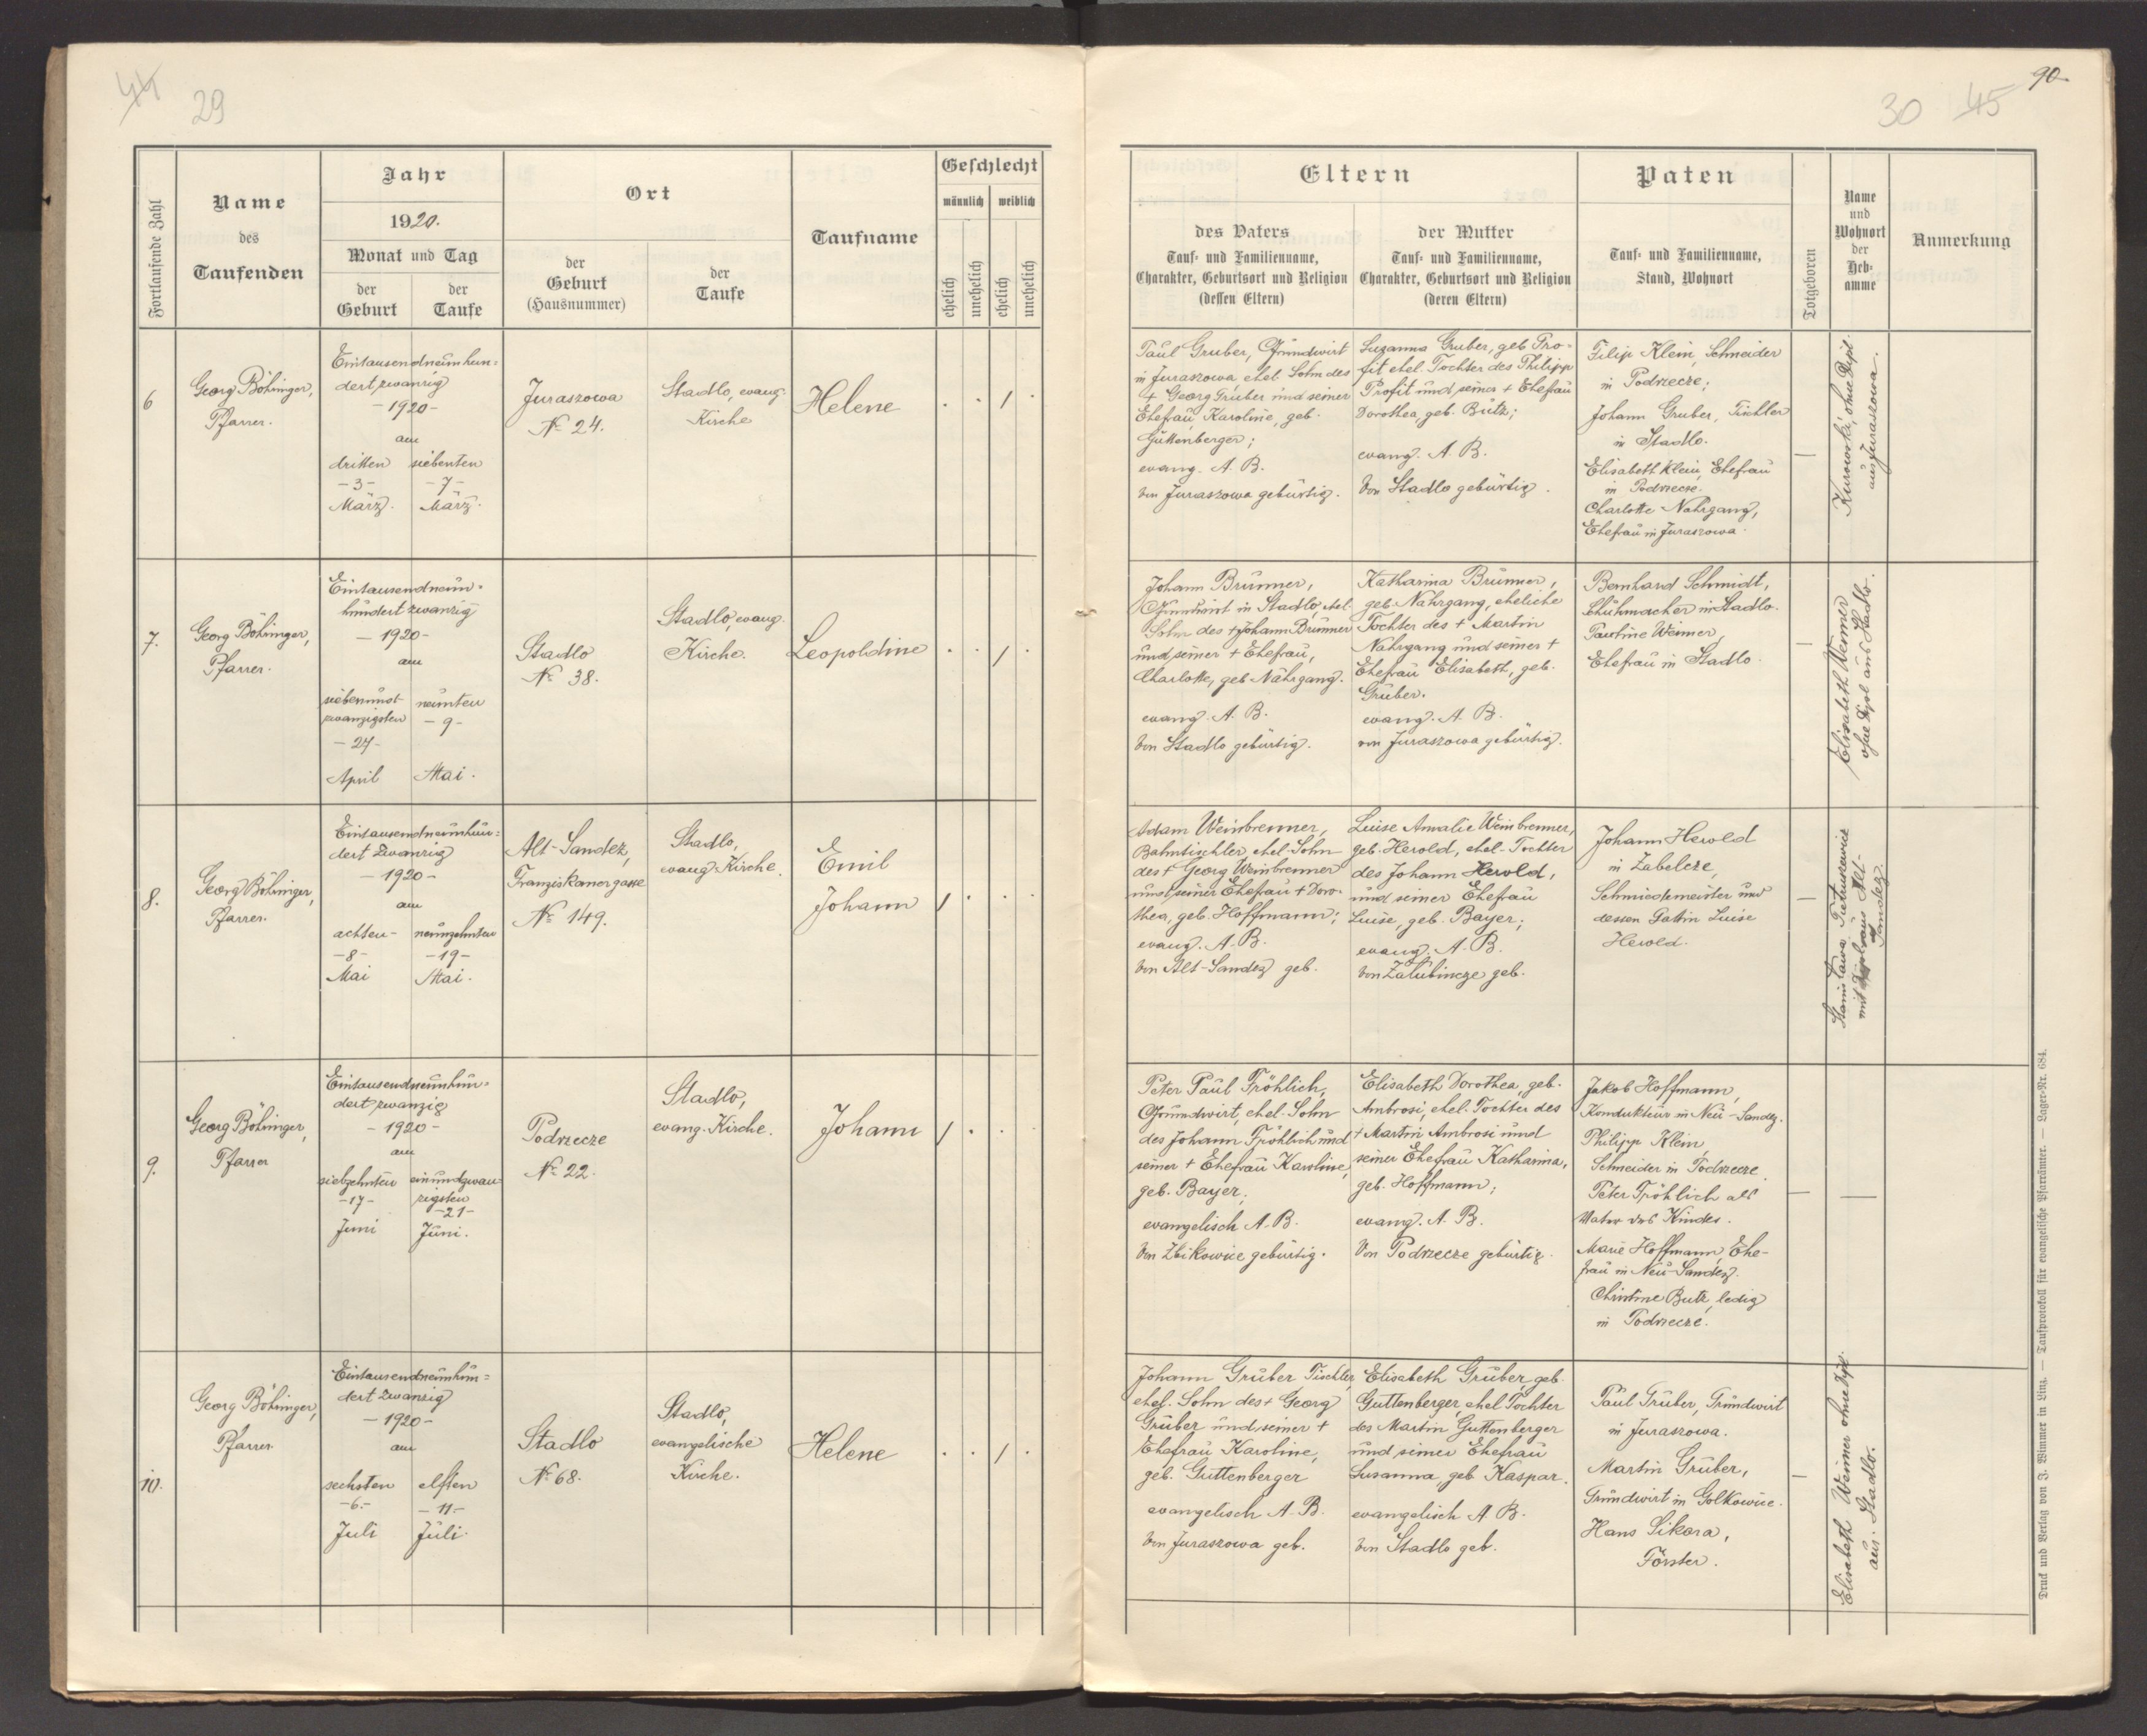 44 29
30 45 90.
Fortlaufende Zahl
Name
des
Taufenden
Jahr
1920.
Monat und Tag
der
Geburt
der
Taufe
Ort
der
Geburt
(Hausnummer)
der
Taufe
Taufname
Geschlecht
männlich weiblich
ehelich
unehelich
ehelich
unehelich
Eltern
des Vaters
Tauf- und Familienname,
Charakter, Geburtsort und Religion
(dessen Eltern)
der Mutter
Tauf- und Familienname,
Charakter, Geburtsort und Religion
(deren Eltern)
Paten
Tauf- und Familienname,
Stand, Wohnort
Totgeboren
Name
und
Wohnort
der
Heb-
amme
Anmerkung
6
Georg Böhringer,
Pfarrer.
Eintausendneunhun-
dertzwanzig
-1920-
am
dritten
-3-
März.
siebenten
-7-
März.
Juraszowa
No 24.
Stadlo, evang.
Kirche
Helene
. . 1 .
Paul Gruber, Grundwirt
in Juraszowa, ehel. Sohn des
+ Georg Gruber und seiner
Ehefrau Karoline, geb.
Guttenberger;
evang. A. B.
Von Juraszowa gebürtig.
Suzanna Gruber, geb. Pro-
fit ehel. Tochter des Philipp
Profit und seiner + Ehefrau
Dorothea, geb. Butz;
evang. A. B.
Von Stadlo gebürtig.
Filip Klein, Schneider
in Podrzecze;
Johann Gruber, Tischler
in Stadlo.
Elisabeth Klein, Ehefrau
in Podrzecze.
Charlotte Nahrgang,
Ehefrau in Juraszowa.
—
Kurowski, ohne Dipl.
aus Juraszowa.
7.
Georg Böhringer,
Pfarrer.
Eintausendneun-
hundertzwanzig
-1920-
am
siebenund-
zwanzigsten
-27-
April
neunten
-9-
Mai.
Stadlo
No 38.
Stadlo, evang.
Kirche.
Leopoldine
. . 1 .
Johann Brunner,
Grundwirt in Stadlo, ehel.
Sohn des + Johann Brunner
und seiner + Ehefrau,
Charlotte, geb. Nahrgang.
evang. A. B.
Von Stadlo gebürtig.
Katharina Brunner,
geb. Nahrgang, eheliche
Tochter des + Martin
Nahrgang und seiner +
Ehefrau Elisabeth, geb.
Gruber.
evang. A. B.
von Juraszowa gebürtig.
Bernhard Schmidt,
Schuhmacher in Stadlo.
Pauline Weimer,
Ehefrau in Stadlo.
—
Elisabeth Weimer
ohne Dipl. aus Stadlo.
8.
Georg Böhringer,
Pfarrer.
Eintausendneunhun-
dert zwanzig
-1920-
am
achten-
-8-
Mai
neunzehnten
-19-
Mai.
Alt-Sandez,
Franziskanergasse
No 149.
Stadlo,
evang. Kirche.
Emil
Johann
1 . . .
Adam Weinbrenner,
Bahntischler, ehel. Sohn
des + Georg Weinbrenner
und seiner Ehefrau + Doro-
thea, geb. Hoffmann;
evang. A. B.
Von Alt-Sandez geb.
Luise Amalie Weinbrenner,
geb. Herold, ehel. Tochter
des Johann Herold,
und seiner Ehefrau
Luise, geb. Bayer;
evang. A. B.
Von Zalubincze geb.
Johann Herold
in Zabelcze,
Schmiedemeister und
dessen Gattin Luise
Herold.
—
Stanislawa Pietruszewicz
mit Dipl. aus Alt-
Sandez
9.
Georg Böhringer,
Pfarrer
Eintausendneunhun-
dertzwanzig
-1920-
am
siebzehnten
-17-
Juni
einundzwan-
zigsten
-21-
Juni.
Podrzecze
No 22.
Stadlo,
evang. Kirche.
Johann
1 . . .
Peter Paul Fröhlich,
Grundwirt, ehel. Sohn
des Johann Fröhlich und
seiner + Ehefrau Karoline,
geb. Bayer,
evangelisch A. B.
Von Zbikowice gebürtig.
Elisabeth Dorothea, geb.
Ambrosi, ehel. Tochter des
+ Martin Ambrosi und
seiner Ehefrau Katharina,
geb. Hoffmann;
evang. A. B.
Von Podrzecze gebürtig.
Jakob Hoffmann,
Kondukteur in Neu-Sandez.
Philipp Klein,
Schneider in Podrzecze
Peter Fröhlich als
Vater des Kindes.
Marie Hoffmann, Ehe-
frau in Neu-Sandez.
Christine Butz, ledig
in Podrzecze.
—
—
10.
Georg Böhringer,
Pfarrer.
Eintausendneunhun-
dert zwanzig
-1920-
am
sechsten
-6.-
Juli
elften
-11.-
Juli.
Stadlo
No 68.
Stadlo,
evangelische
Kirche.
Helene
. . 1 .
Johann Gruber Tischler,
ehel. Sohn des + Georg
Gruber und seiner +
Ehefrau Karoline,
geb. Guttenberger
evangelisch A. B.
Von Juraszowa geb.
Elisabeth Gruber, geb.
Guttenberger, ehel. Tochter
des Martin Guttenberger
und seiner Ehefrau
Susanna, geb. Kaspar.
evangelisch A B.
Von Stadlo geb.
Paul Gruber, Grundwirt
in Juraszowa.
Martin Gruber,
Grundwirt in Golkowice.
Hans Sikora,
Förster.
—
Elisabeth Weimer ohne Dipl.
aus Stadlo.
Druck und Verlag von J. Wimmer in Linz. — Taufprotokoll für evangelische Pfarrämter. — Lager-Nr. 684.